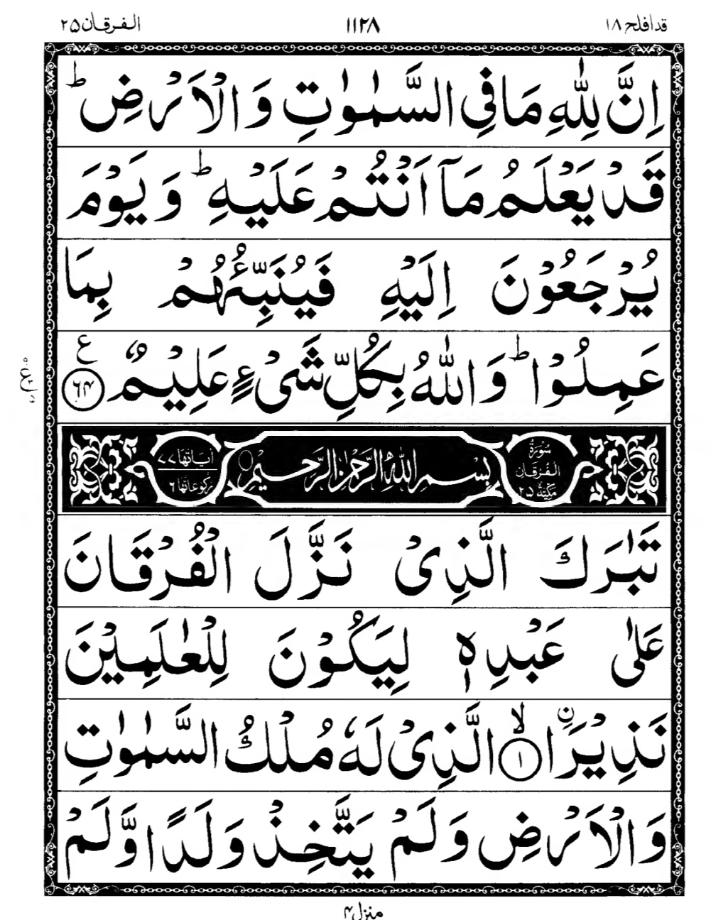 قد افلح ١٨
١١٢٨
الفرقان ٢٥
اِنَّ لِلّٰهِ مَا فِي السَّمٰوٰتِ وَ الْاَرْضِ ؕ
قَدْ يَعْلَمُ مَاۤ اَنْتُمْ عَلَيْهِ ؕ وَ يَوْمَ
يُرْجَعُوْنَ اِلَيْهِ فَيُنَبِّئُهُمْ بِمَا
عَمِلُوْا ؕ وَ اللّٰهُ بِكُلِّ شَیْءٍ عَلِيْمٌ ﴿٦٤﴾ ع
سُوْرَةُ الْفُرْقَانِ مَكِّيَّةٌ ٢٥
بِسْمِ اللّٰهِ الرَّحْمٰنِ الرَّحِيْمِ
اٰيَاتُهَا ٧٧
رُكُوْعَاتُهَا ٦
تَبٰرَكَ الَّذِیْ نَزَّلَ الْفُرْقَانَ
عَلٰی عَبْدِهٖ لِيَكُوْنَ لِلْعٰلَمِيْنَ
نَذِيْرًا ۙ﴿١﴾ ۨالَّذِیْ لَهٗ مُلْكُ السَّمٰوٰتِ
وَ الْاَرْضِ وَ لَمْ يَتَّخِذْ وَلَدًا وَّ لَمْ
منزل ٤